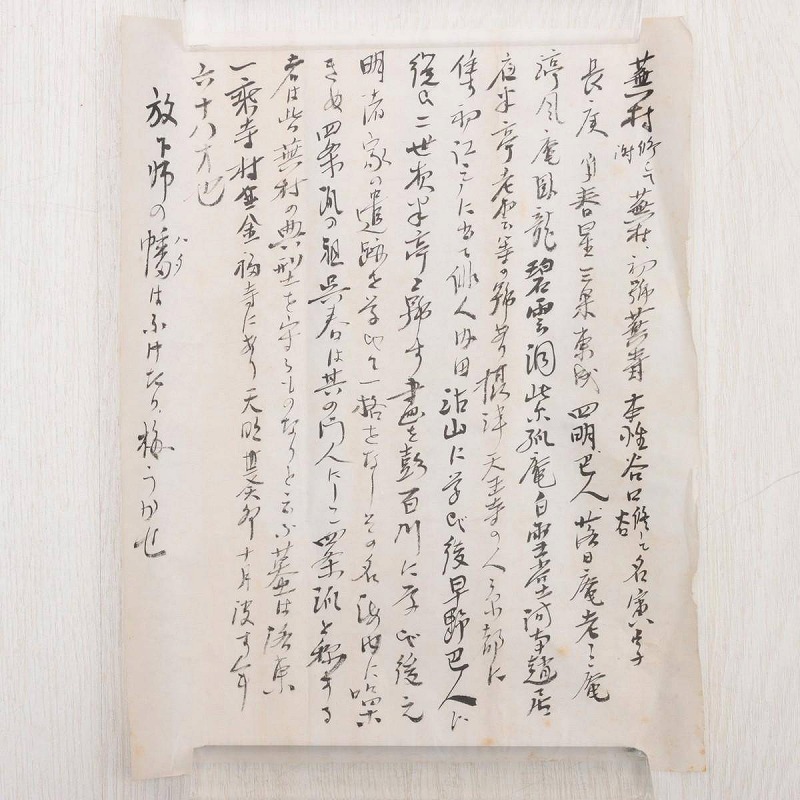 蕪村 謝 修シテ蕪村 初號蕪村 本姓谷口修シテ谷 名寅 字
長庚 又春星 三果 東成 四明 巴人 落日庵 老三庵
淳風庵 臥龍 碧雲洞 紫狐庵 白雪堂 河南趙居
夜半亭 老雲等の號あり 摂津天王寺の人 京都に
住す 初江戸に出て俳人内田沾山に学び後早野巴人に
従ひ二世夜半亭と號す 畫を彭百川に学び後元
明諸家の遺跡を学びて一格をなしその名海内に噪
きぬ 四条派の祖呉春は其の門人にして四条派と称する
者は皆蕪村の典型を守るものなりと云ふ 墓は洛東
一乗寺村金福寺にあり 天明 癸卯十二月 没す 年
六十八才也
放下師の幡はふけたり梅うか
ハタ